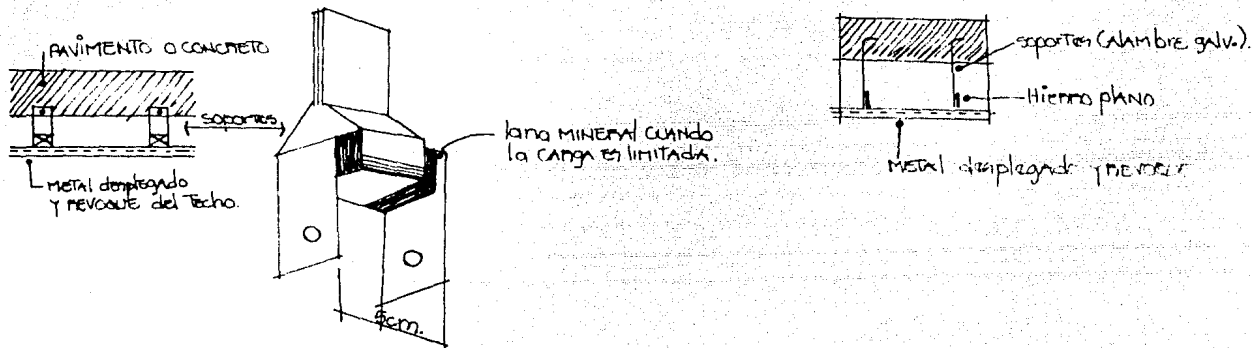 PAVIMENTO O CONCRETO
soportes
METAL desplegado
Y REVOQUE del Techo.
lana MINERAL CUANDO
la CARGA ES LIMITADA.
5cm.
soportes (Alambre galv.).
Hierro plano
METAL desplegado y REVOQUE